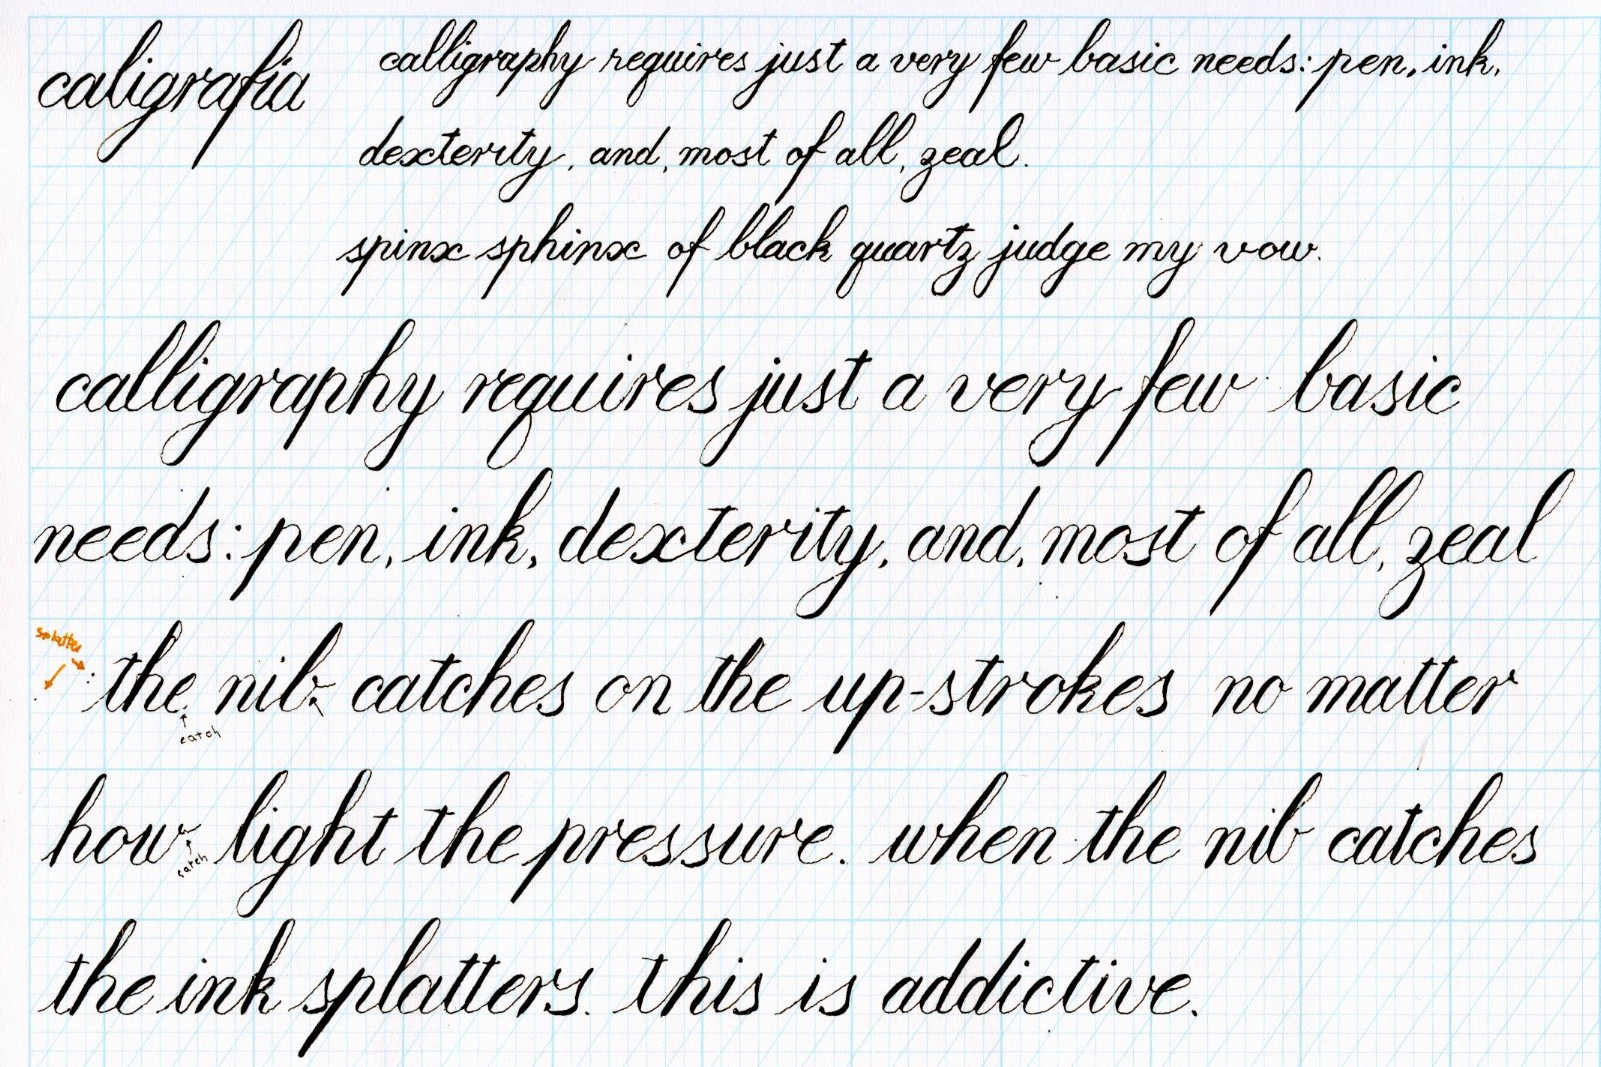 caligrafia
calligraphy requires just a very few basic needs: pen, ink,
dexterity, and, most of all, zeal.
spinx sphinx of black quartz judge my vow.
calligraphy requires just a very few basic
needs: pen, ink, dexterity, and, most of all, zeal
splatter
the nib catches on the up-strokes no matter
catch
how light the pressure. when the nib catches
catch
the ink splatters. this is addictive.